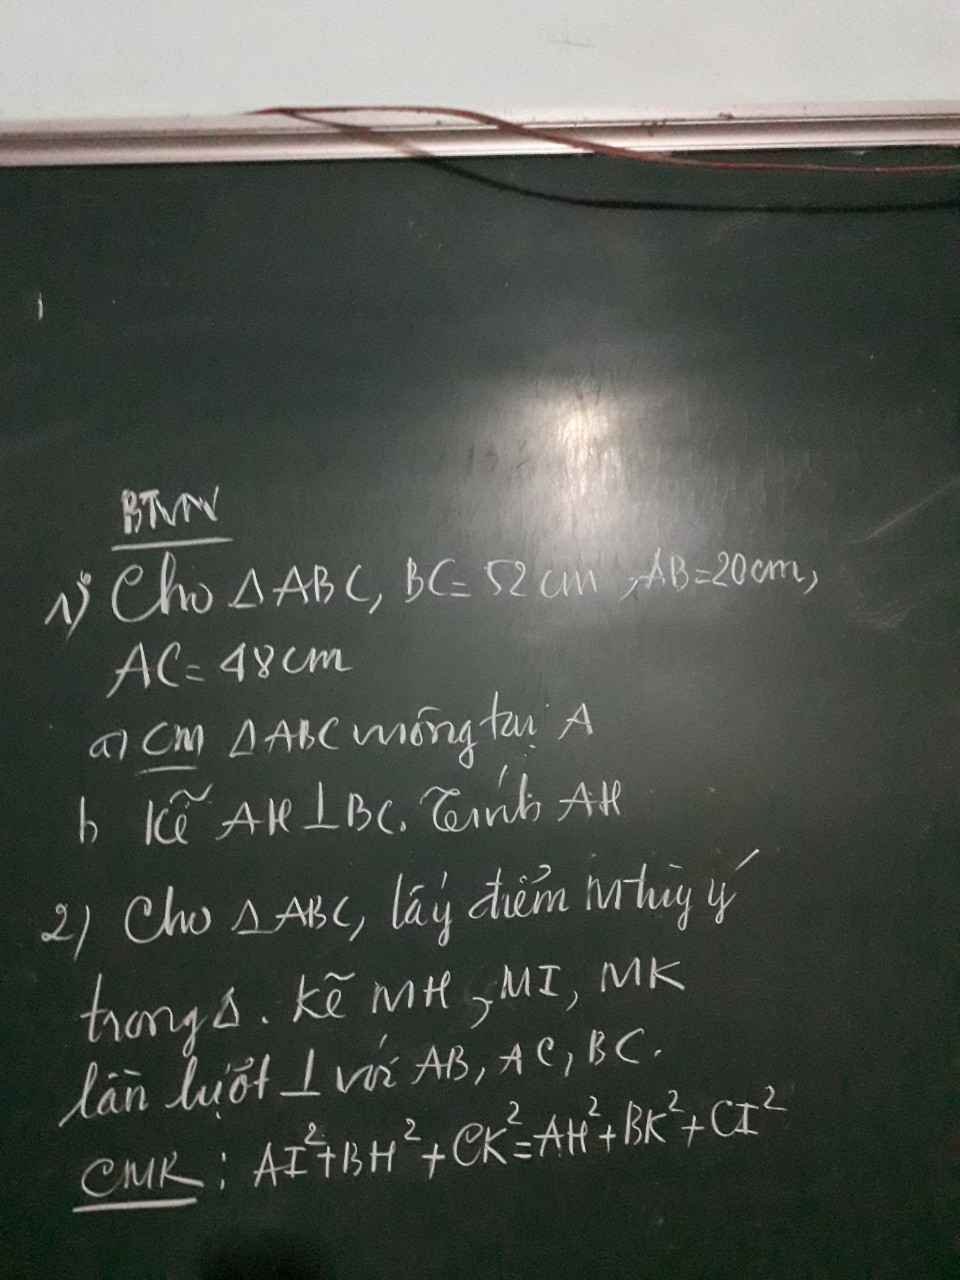 BTVN
1) Cho Δ ABC, BC = 52 cm, AB = 20cm,
AC = 48cm
a) CM Δ ABC vuông tại A
b kẽ AH ⊥ BC. Tính AH
2) Cho Δ ABC, lấy điểm M tùy ý
trong Δ. kẽ MH, MI, MK
lần lượt ⊥ với AB, AC, BC.
CMR: AI²+BH²+CK²=AH²+BK²+CI²